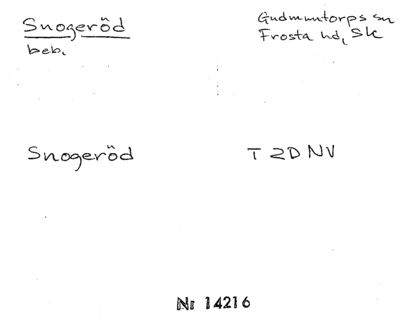 Snogeröd
beb.
Gudmuntorps sn
Frosta hd, Sk
Snogeröd
T 2D NV
Nr 14216